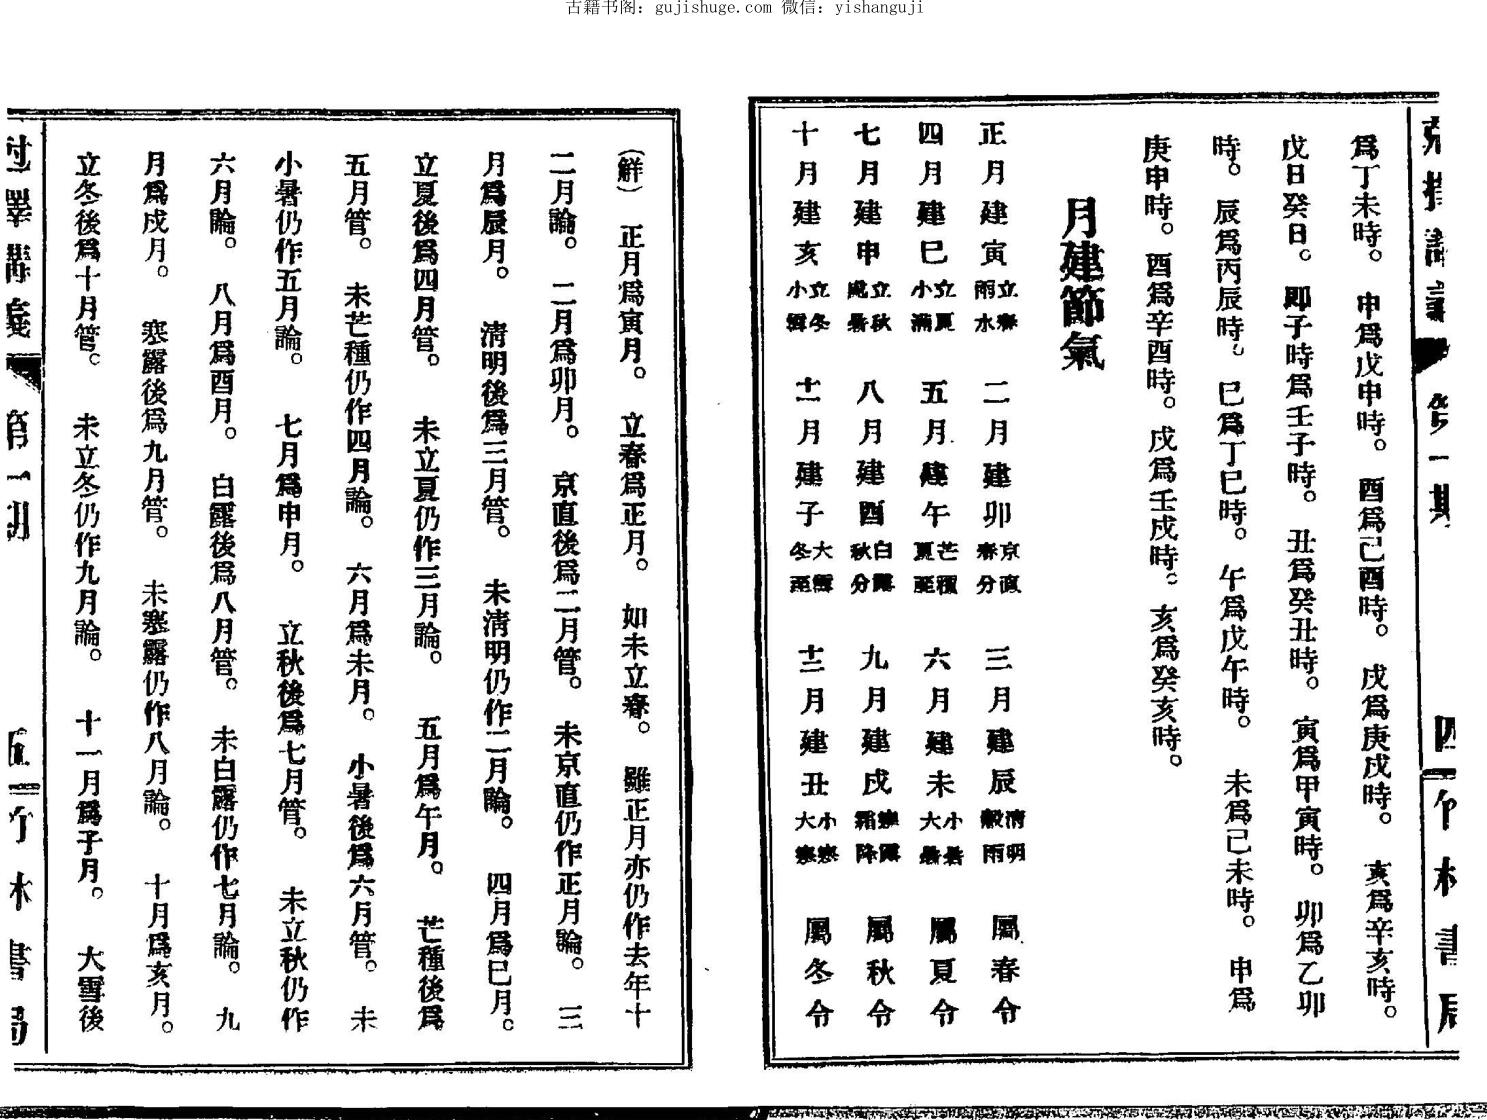 古籍书阁：gujishuge.com 微信：yishanguji
第一期
四 竹林書局
爲丁未時。申爲戊申時。酉爲己酉時。戌爲庚戌時。亥爲辛亥時。
戊日癸日。即子時爲壬子時。丑爲癸丑時。寅爲甲寅時。卯爲乙卯
時。辰爲丙辰時。巳爲丁巳時。午爲戊午時。未爲己未時。申爲
庚申時。酉爲辛酉時。戌爲壬戌時。亥爲癸亥時。
月建節氣
正月建寅立春雨水 二月建卯京直春分 三月建辰清明穀雨 屬春令
四月建巳立夏小滿 五月建午芒種夏至 六月建未小暑大暑 屬夏令
七月建申立秋處暑 八月建酉白露秋分 九月建戌寒露霜降 屬秋令
十月建亥立冬小雪 十一月建子大雪冬至 十二月建丑小寒大寒 屬冬令
（解）正月爲寅月。立春爲正月。如未立春。雖正月亦仍作去年十
二月論。二月爲卯月。京直後爲二月管。未京直仍作正月論。三
月爲辰月。清明後爲三月管。未清明仍作二月論。四月爲巳月。
立夏後爲四月管。未立夏仍作三月論。五月爲午月。芒種後爲
五月管。未芒種仍作四月論。六月爲未月。小暑後爲六月管。未
小暑仍作五月論。七月爲申月。立秋後爲七月管。未立秋仍作
六月論。八月爲酉月。白露後爲八月管。未白露仍作七月論。九
月爲戌月。寒露後爲九月管。未寒露仍作八月論。十月爲亥月。
立冬後爲十月管。未立冬仍作九月論。十一月爲子月。大雪後
講義 第一期
五 竹林書局